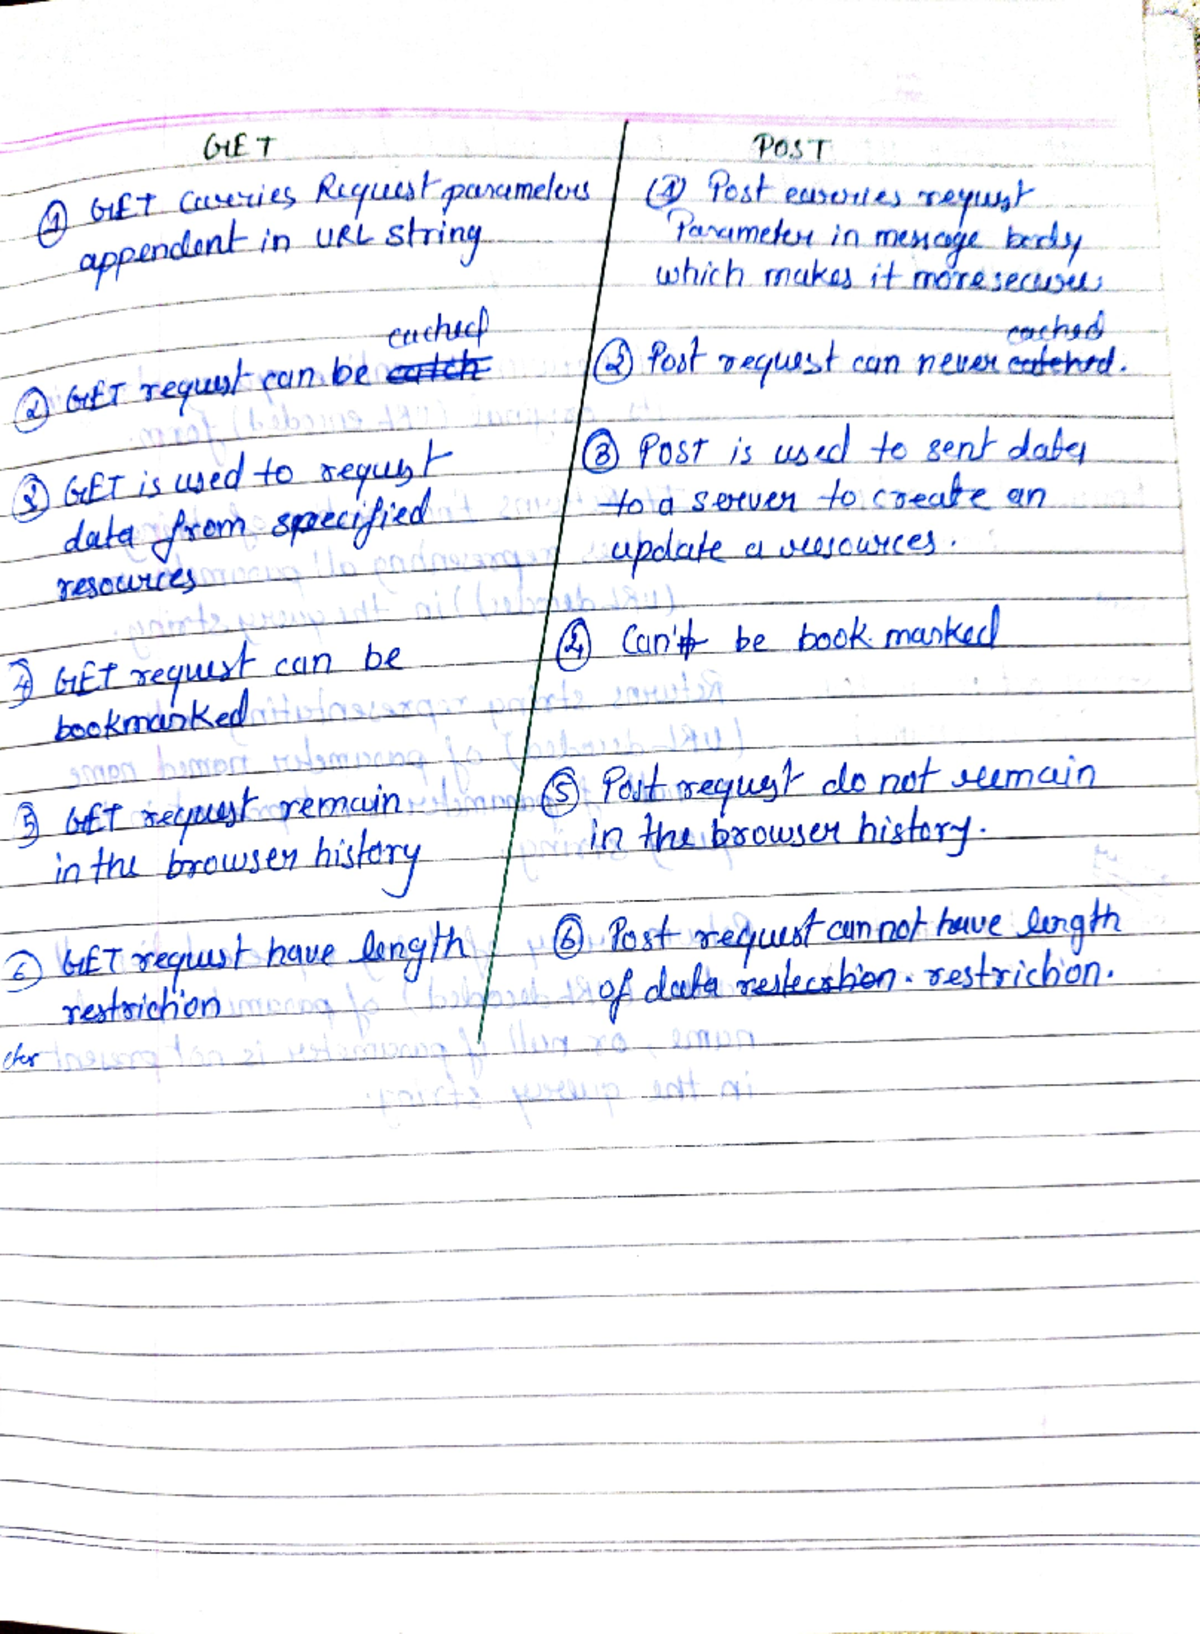 GET
POST
① GET Carries Request parameters
appendent in URL string
① Post carries request
Parameter in message body
which makes it more secure.
cached
② GET request can be catch
cached
② Post request can never catched.
③ GET is used to request
data from specified
resources
③ POST is used to sent data
to a server to create an
update a resources.
④ GET request can be
bookmarked
④ Can't be book marked
⑤ GET request remain
in the browser history
⑤ Post request do not remain
in the browser history.
⑥ GET request have length
restriction
⑥ Post request cannot have length
of data restriction.